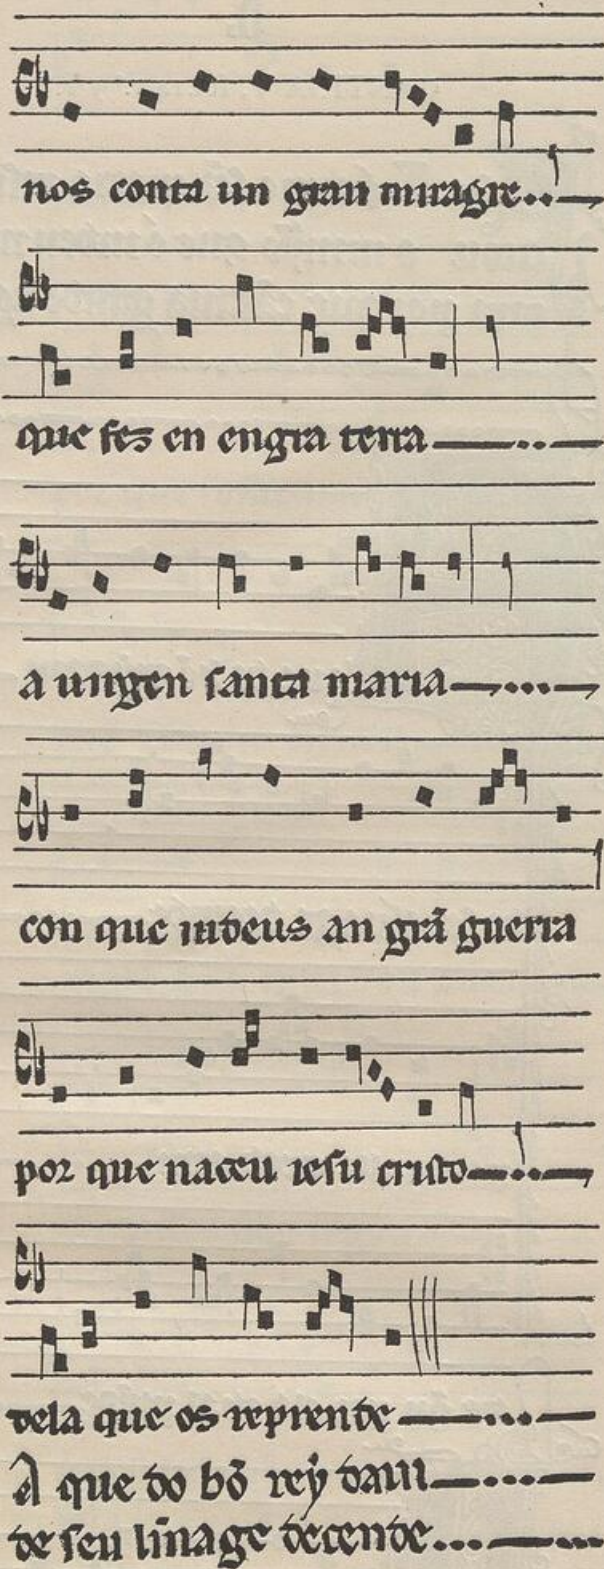 nos conta un gran miragre
que fez en engra terra
a uirgen santa maria
con que iudeus an grã guerra
por que naceu iesu cristo
dela que os reprende
A que do bõ rey daui
de seu linage decende